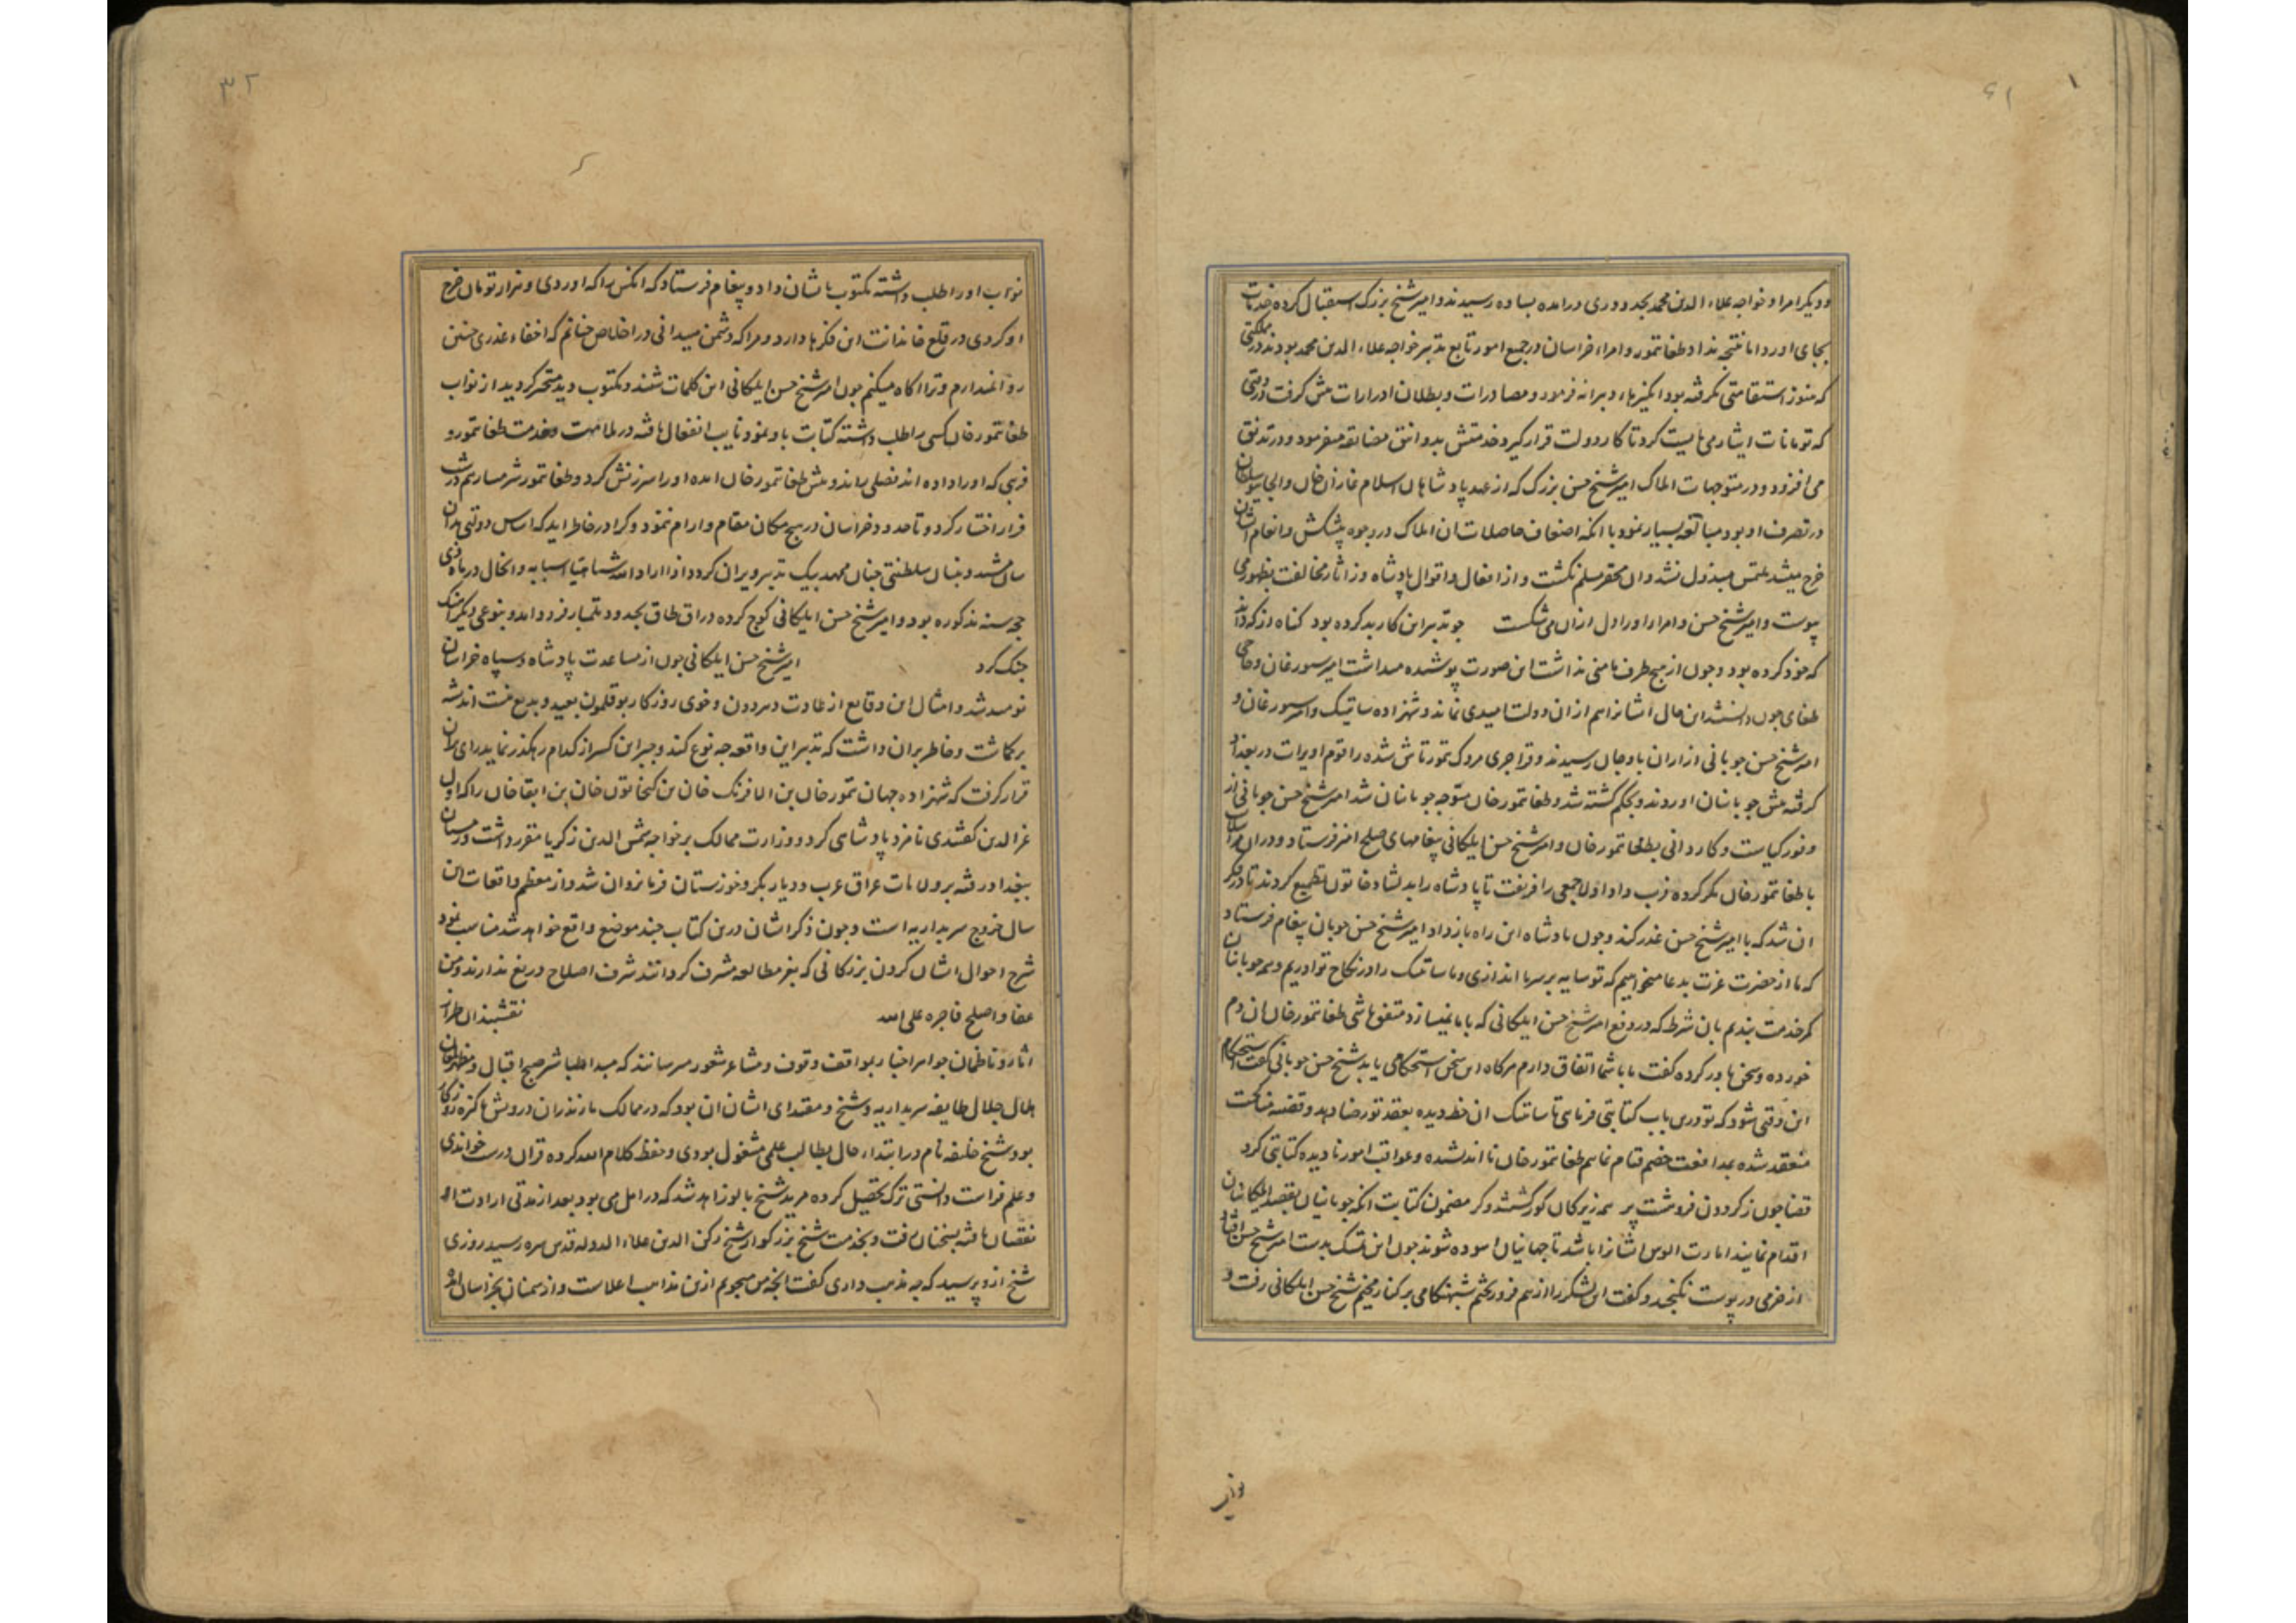 و دیگر امرا و خواجه علاء الدین محمد بحدود ری درامده بساوه رسیدند و امیر شیخ بزرگ استقبال کرده خدمات
بجای اورد اما نتیجه نداد و طغاتمور و امراء خراسان در جمیع امور تابع تدبیر خواجه علاء الدین محمد بودند در مملکتی
که هنوز استقامتی نگرفته بود انگیزها و دیرانه فرمود و مصادرات و بطلان ادرارات پیش گرفت در وقتی
که تومانات ایثار می بایست کرد تا کار دولت قرار گیرد خدمتش بدو انق مضایقه میفرمود و در تدنق
می افزود و در متوجهات املاک امیر شیخ حسن بزرگ که از عهد پادشاهان اسلام غازان خان و الجایتو سلطان
در تصرف او بود مبالغه بسیار نمود با انکه اضعاف حاصلات ان املاک در وجوه پیشکش و انعام ایشان
خرج میشد ملتمس مبذول نشد و ان محقر مسلم نگشت و از افعال و اقوال پادشاه و زآثار مخالفت بظهور می
پیوست و امیر شیخ حسن و امرا را اورا دل ازان می شکست چو تدبیر این کار بد کرده بود گناه از که داند
که خود کرده بود و چون از هیچ طرف مامنی نداشت این صورت پوشیده میداشت امیر سیورغان و حاجی
طغای چون دانستند این حال ایشانرا هم ازان دولت امیدی نماند و شهزاده ساتیبک و امیر سیورغان و
امیر شیخ حسن جوبانی از اران باوجان رسیدند و قراجری مردک تمورتاش شده را قوم اویرات در بغداد
گرفته پیش جوبانیان اوردند و بحکم کشته شد و طغاتمورخان متوجه جوبانیان شد امیر شیخ حسن جوبانی از
وفور کیاست و کاردانی بطغاتمورخان و امیر شیخ حسن ایلکانی پیغامهای صلح امیز فرستاد و دران مراسلات
با طغاتمورخان مکر کرده فریب داد و اول جمعی را فریفت تا پادشاه را بدلشاد خاتون تطمیع کردند تا در فکر
ان شد که با امیر شیخ حسن غدر کند و چون پادشاه این راه باز داد امیر شیخ حسن جوبان پیغام فرستاد
که ما از حضرت عزت بدعا میخواهیم که تو سایه بر سر ما اندازی و ما ساتیبک را در نکاح تو ادریم و همه جوبانیان
کمر خدمت بندیم بان شرطه که در دفع امیر شیخ حسن ایلکانی که با ما نمیسازد متفق باشی طغاتمورخان ان دم
خورده و سخن باور کرده گفت ما با شما اتفاق دارم هرگاه این سخن استحکامی یابد شیخ حسن جوبانی گفت استحکام
این وقتی شود که تو درین باب کتابتی فرمای تا ساتیبک ان خط دیده بعقد تو رضا دهد و قضیه مناکحت
منعقد شده بمدافعت خصم قیام نمایم طغاتمورخان نااندیشده و عواقب امور نادیده کتابتی کرد
قضا چون ز کردون فرو هشت پر همه زیرکان کور گشتند و کر مضمون کتابت انکه جوبانیان بقصد ایلکانیان
اقدام نمایند امارت الوس ایشانرا باشد تا جهانیان اسوده شوند چون این تمسک بدست امیر شیخ حسن افتاد
از خرمی در پوست نگنجد و گفت این لشکر را از هم فرو ریختم شبهنگامی بر کنار مخیم شیخ حسن ایلکانی رفت و
نواب
نواب او را طلب داشته مکتوب بایشان داد و پیغام فرستاد که انکس را که اوردی و هزار تومان خرج
او کردی در قلع خاندانت این فکرها دارد و مرا که دشمن میدانی در اخلاص چنانم که اخفاء غدری چنین
روا نمیدارم و ترا اگاه میکنم چون امیر شیخ حسن ایلکانی این کلمات شنید و مکتوب دید متحیر گردید از نواب
طغاتمورخان کسی را طلب داشته کتابت باو نمود نایب انفعال یافته در ملامت بخدمت طغاتمور و
فریبی که اورا داده اند فصلی براند و پیش طغاتمورخان امده اورا سرزنش کرد و طغاتمور شرمسار هم در شب
فرار اختیار کرد و تا حدود خراسان در هیچ مکان مقام و ارام ننمود و کرا در خاطر اید که اساس دولتی بدان
سان مشید و بنیان سلطنتی چنان ممهد بیک تدبیر ویران گردد اذا اراد الله شیئا هیأ اسبابه و الحال در ماه ذی
حجه سنه مذکوره بود و امیر شیخ حسن ایلکانی کوچ کرده در اق طاق بحدود تلمبار فرود امد و بنوعی دیگر اهنگ
جنگ کرد امیر شیخ حسن ایلکانی چون از مساعدت پادشاه و سپاه خراسان
نومید شد و امثال این وقایع از عادت دهر دون و خوی روزگار بوقلمون بعید و بدیع نیست اندیشه
برگماشت و خاطر بران داشت که تدبیر این واقعه چه نوع کند و جبر این کسر از کدام رهگذر نماید رای بران
قرار گرفت که شهزاده جهان تمورخان بن الافرنگ خان بن کیخاتون خان بن ابقا خان را که اول
عز الدین گفتندی نامزد پادشاهی کرد و وزارت ممالک بر خواجه شمس الدین زکریا مقرر داشت و زمستان
ببغداد رفته بر ولایات عراق عرب و دیار بکر و خوزستان فرمانروان شد و از معظم واقعات این
سال خروج سربداریه است و چون ذکر ایشان درین کتاب چند موضع واقع خواهد شد مناسب نمود
شرح احوال ایشان کردن بزرگانی که بنظر مطالعه مشرف گردانند شرف اصلاح دریغ ندارند و من
عفا و اصلح فاجره علی الله نقشبندان طراز
اثار و ناظمان جواهر اخبار بمواقف وقوف و مشاعر شعور میرسانند که مبدا طباشیر صبح اقبال و مطلع
هلال جلال طایفه سربداریه و شیخ و مقتدای ایشان ان بود که در ممالک مازندران درویش پاکیزه روزگار
بود شیخ خلیفه نام در ابتداء حال بطالب علمی مشغول بودی و حفظ کلام الله کرده قران درست خواندی
و علم فراست دانستی ترک تحصیل کرده مرید شیخ بالوزاهد شد که در امل می بود بعد از مدتی ارادت او
نقصان یافته بسمنان رفت و بخدمت شیخ بزرگوار شیخ رکن الدین علاء الدوله قدس سره رسید روزی
شیخ ازو پرسید که چه مذهب داری گفت انچه من میجویم ازین مذاهب اعلاست و از سمنان بخراسان امد